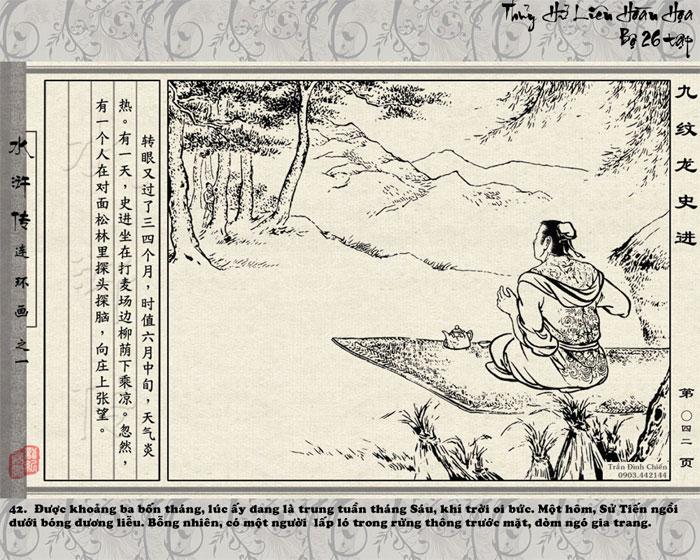 Thủy Hử Liên Hoàn Họa
Bộ 26 tập
九纹龙史进
第〇四二页
转眼又过了三四个月，时值六月中旬，天气炎
热。有一天，史进坐在打麦场边柳荫下乘凉。忽然，
有一个人在对面松林里探头探脑，向庄上张望。
水浒传
连环画之一
Trần Đình Chiến
0903.442144
42. Được khoảng ba bốn tháng, lúc ấy đang là trung tuần tháng Sáu, khí trời oi bức. Một hôm, Sử Tiến ngồi
dưới bóng dương liễu. Bỗng nhiên, có một người lấp ló trong rừng thông trước mặt, dòm ngó gia trang.